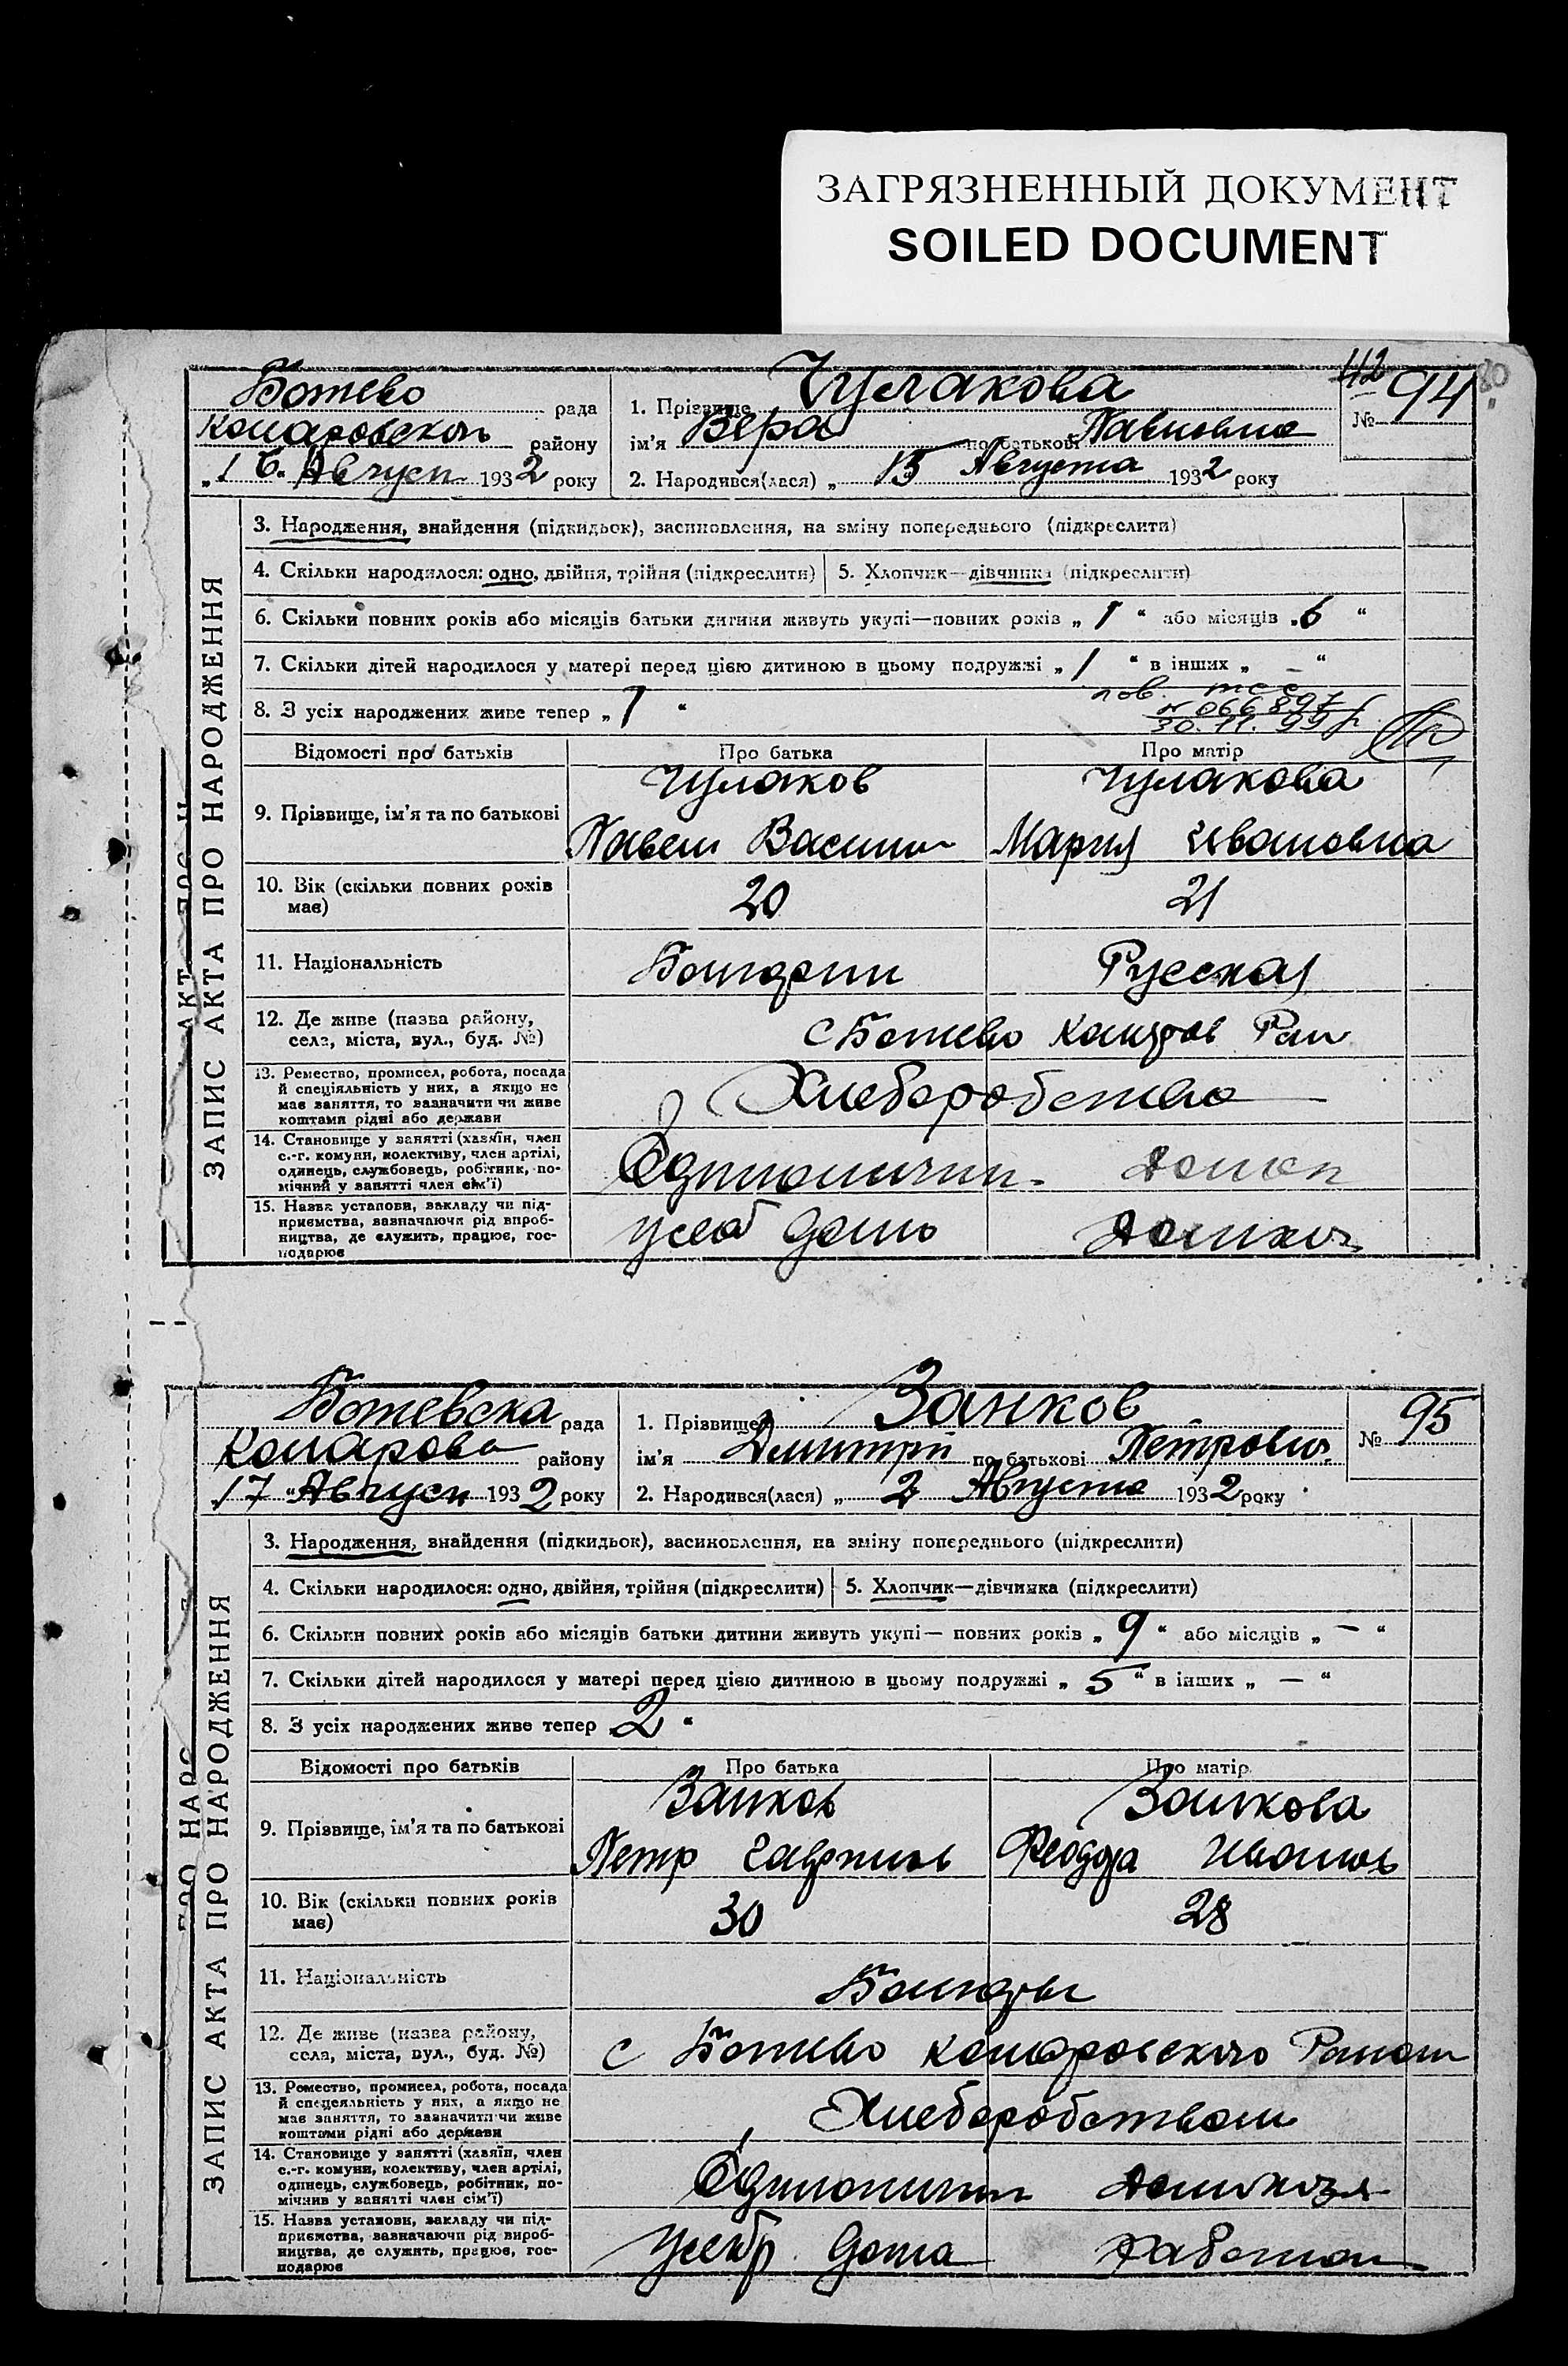 ЗАГРЯЗНЕННЫЙ ДОКУМЕНТ
SOILED DOCUMENT
112
80
Ботево рада
района
"16. Август 1932 року
1. Прізвище Чулакова
ім'я Вера по батькові Павловна
2. Народився(лася) „ 15 Августа 1932 року
№ 94
ЗАПИС АКТА ПРО НАРОДЖЕННЯ
3. Народження, знайдення (підкидьок), засиновлення, на зміну попереднього (підкреслити)
4. Скільки народилося: одно, двійня, трійня (підкреслити)
5. Хлопчик—дівчинка (підкреслити)
6. Скільки повних років або місяців батьки дитини живуть укупі—повних років „ 1 “ або місяців „ 6 “
7. Скільки дітей народилося у матері перед цією дитиною в цьому подружжі „ 1 “ в інших „ – “
8. З усіх народжених живе тепер „ 1 “
пов.
№ 066897
30.11.99 р.
Відомості про батьків
Про батька
Про матір
9. Прізвище, ім'я та по батькові
Чулаков
Павел Васил
Чулакова
Мария Ивановна
10. Вік (скільки повних років має)
20
21
11. Національність
Болгарин
Русская
12. Де живе (назва району,
села, міста, вул., буд. №)
с Ботево
13. Ремество, промисел, робота, посада
й спеціяльність у них, а якщо не
має заняття, то вазначити чи живе
коштами рідні або держави
Хлеборобство
14. Становище у занятті (хазяїн, член
с.-г. комуни, колективу, член артілі,
одинець, службовець, робітник, по-
мічний у занятті член сім'ї)
15. Назва установи, закладу чи під-
приємства, вазначаючи рід вироб-
ництва, де служить, працює, гос-
подарює
Ботевска рада
района
17 "Август 1932 року
1. Прізвище Занков
ім'я Дмитрий по батькові Петрович
2. Народився(лася) „ 2 Августа 1932 року
№ 95
ЗАПИС АКТА ПРО НАРОДЖЕННЯ
3. Народження, знайдення (підкидьок), засиновлення, на зміну попереднього (підкреслити)
4. Скільки народилося: одно, двійня, трійня (підкреслити)
5. Хлопчик—дівчинка (підкреслити)
6. Скільки повних років або місяців батьки дитини живуть укупі— повних років „ 9 “ або місяців „ – “
7. Скільки дітей народилося у матері перед цією дитиною в цьому подружжі „ 5 “ в інших „ – “
8. З усіх народжених живе тепер 2 “
Відомості про батьків
Про батька
Про матір
9. Прізвище, ім'я та по батькові
Занков
Петр
Занкова
10. Вік (скільки повних років має)
30
28
11. Національність
Болгары
12. Де живе (назва району,
села, міста, вул., буд. №)
с Ботево
13. Ремество, промисел, робота, посада
й спецеяльність у них, а якщо не
має заняття, то вазначити чи живе
коштами рідні або держави
Хлеборобством
14. Становище у занятті (хазяїн, член
с.-г. комуни, колективу, член артілі,
одинець, службовець, робітник, по-
мічнив у занятті член сім'ї)
15. Назва установи, закладу чи під-
приємства, вазначаючи рід вироб-
ництва, де служить, працює, гос-
подарює